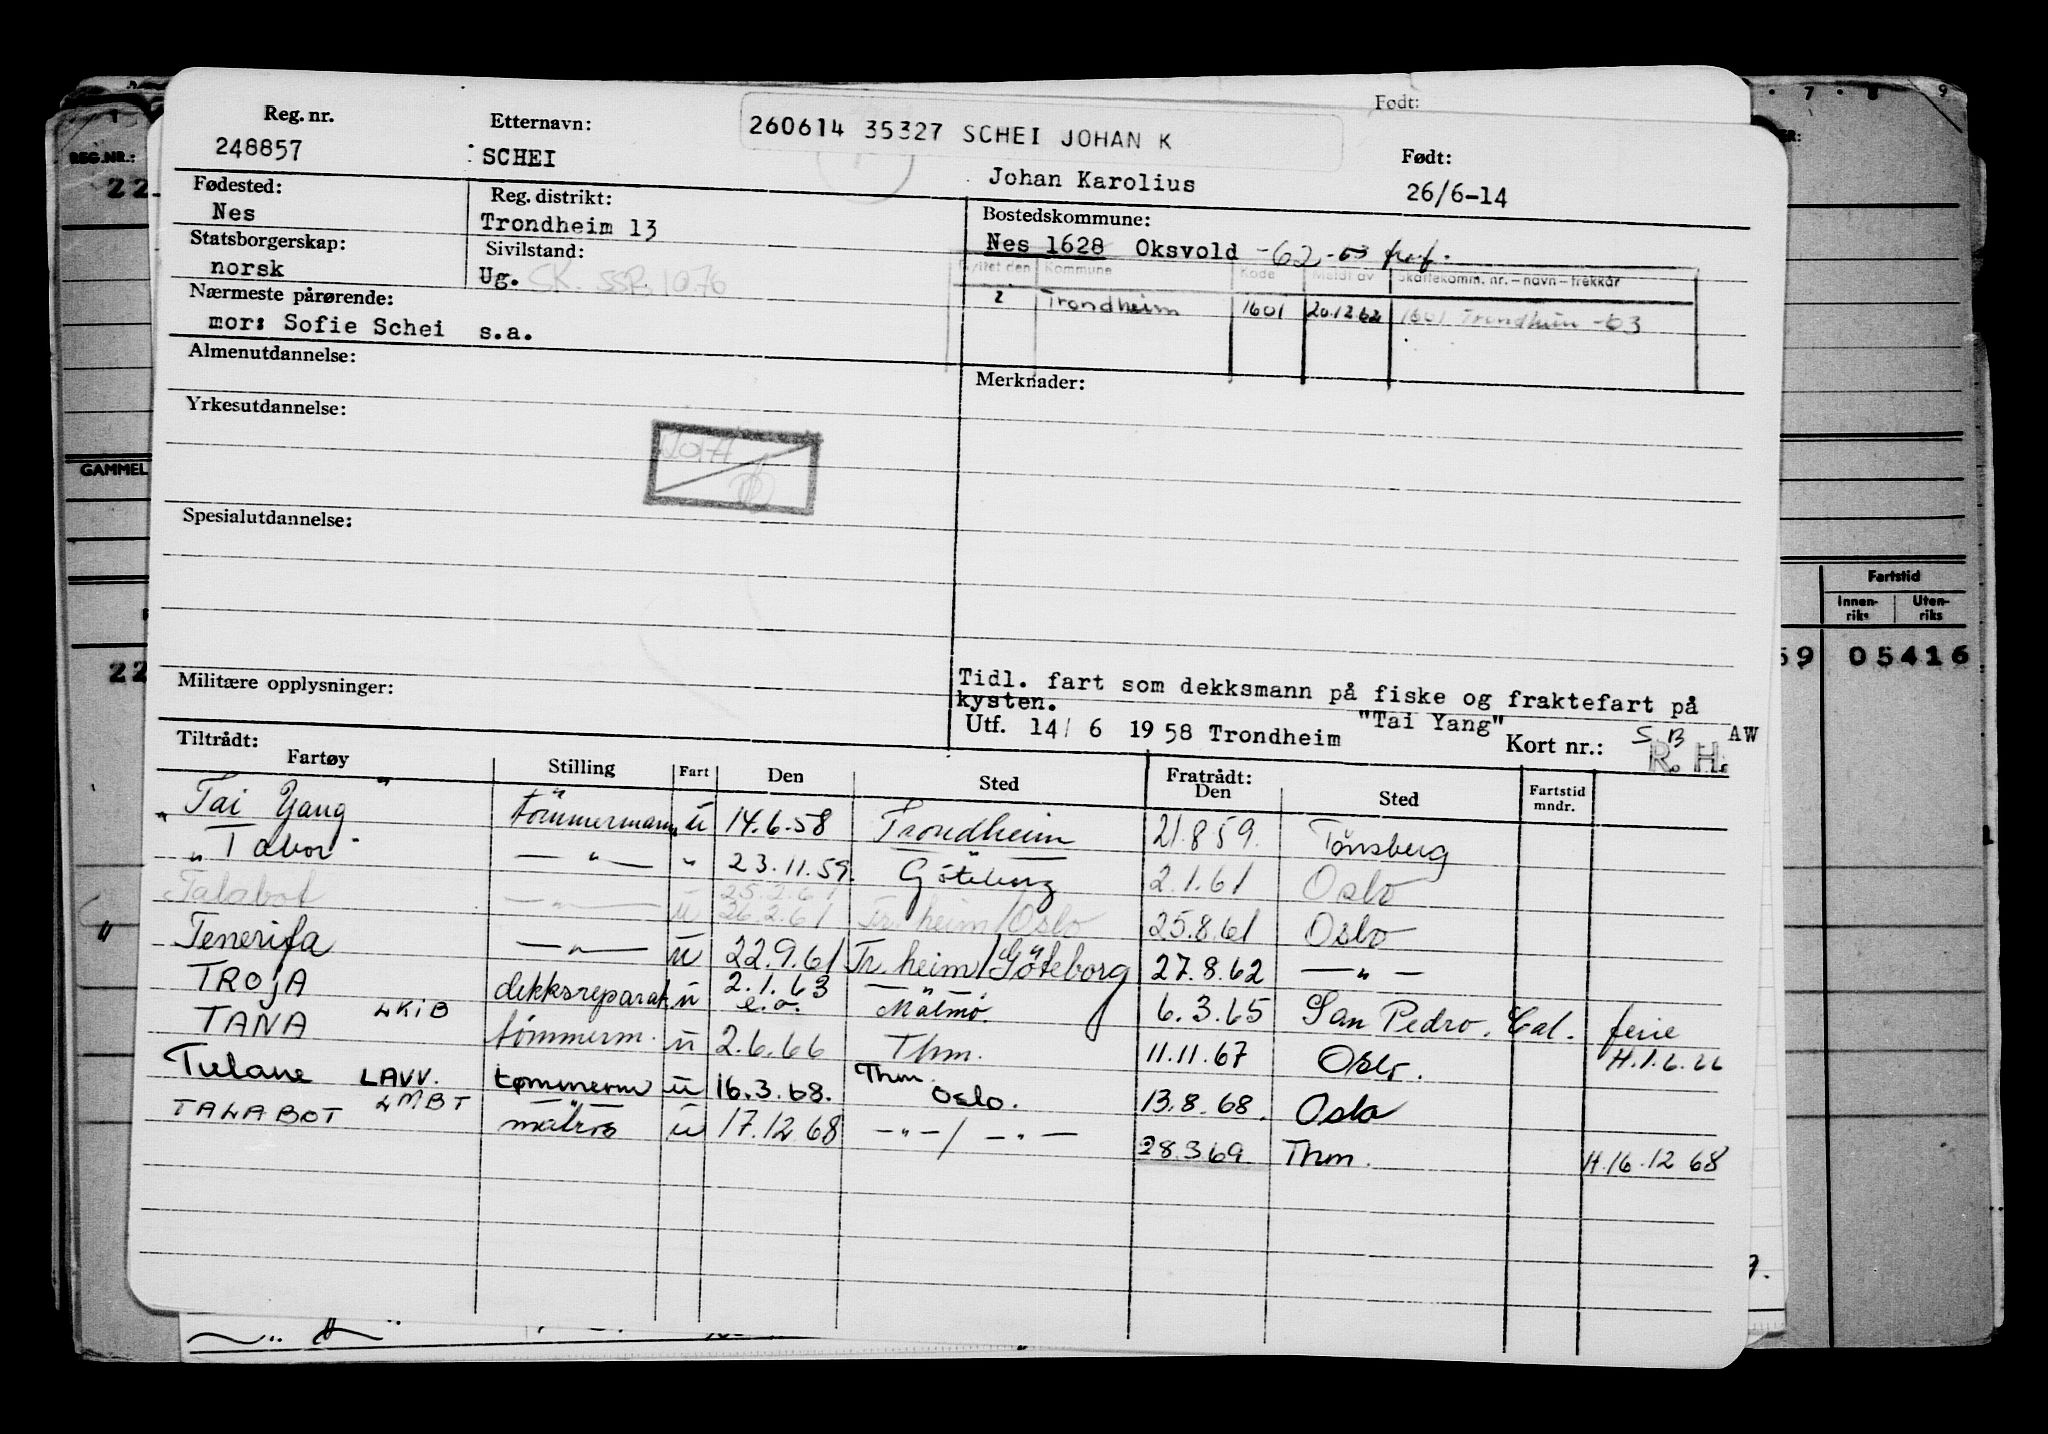 Reg. nr. Etternavn: 260614 35327 SCHEI JOHAN K Født:
248857 SCHEI Johan Karolius Født: 26/6-14
Fødested: Reg. distrikt: Bostedskommune:
Nes Trondheim 13 Nes 1628 Oksvold -62-63 
Statsborgerskap: Sivilstand: Flyttet den Kommune Kode Meldt av Skattekomm. nr. – navn – trekkår
norsk Ug. SK. SSR. 10.76 Trondheim 1601 20.12.62 1601 Trondheim -63
Nærmeste pårørende:
mor: Sofie Schei s.a.
Almenutdannelse: Merknader:
Yrkesutdannelse:
Spesialutdannelse:
Militære opplysninger: Tidl. fart som dekksmann på fiske og fraktefart på
kysten. "Tai Yang" AW
Utf. 14/ 6 1958 Trondheim Kort nr.: S B
R. H.
Tiltrådt: Fratrådt:
Fartøy Stilling Fart Den Sted Den Sted Fartstid mndr.
"Tai Yang" tömmermann ü 14.6.58 Trondheim 21.8 59. Tönsberg
" Tabor — " — " 23.11.59. Göteborg 2.1.61 Oslo
Talabot — " — ü 25.2.61 26.2.61 Tr. heim/Oslo 25.8.61 Oslo
" Tenerifa — " — ü 22.9.61 Tr. heim/Göteborg 27.8.62 — " —
TROJA dekksreparat. ü 2.1.63 e.o. Malmö 6.3.65 San Pedro. Cal. ferie
TANA LKIB tömmerm. ü 2.6.66 Thm. 11.11.67 Oslo. H.1.6.66
Tulane LAVV. tømmerm ü 16.3.68. Thm. Oslo. 13.8.68. Oslo
TALABOT LMBT matros ü 17.12 68 — " — / — " — 28.3 69 Thm. H.16.12 68
REG.NR.: 22
GAMMEL
22
7 · 8 9
Fartstid
Innen-riks Uten-riks
59 05416